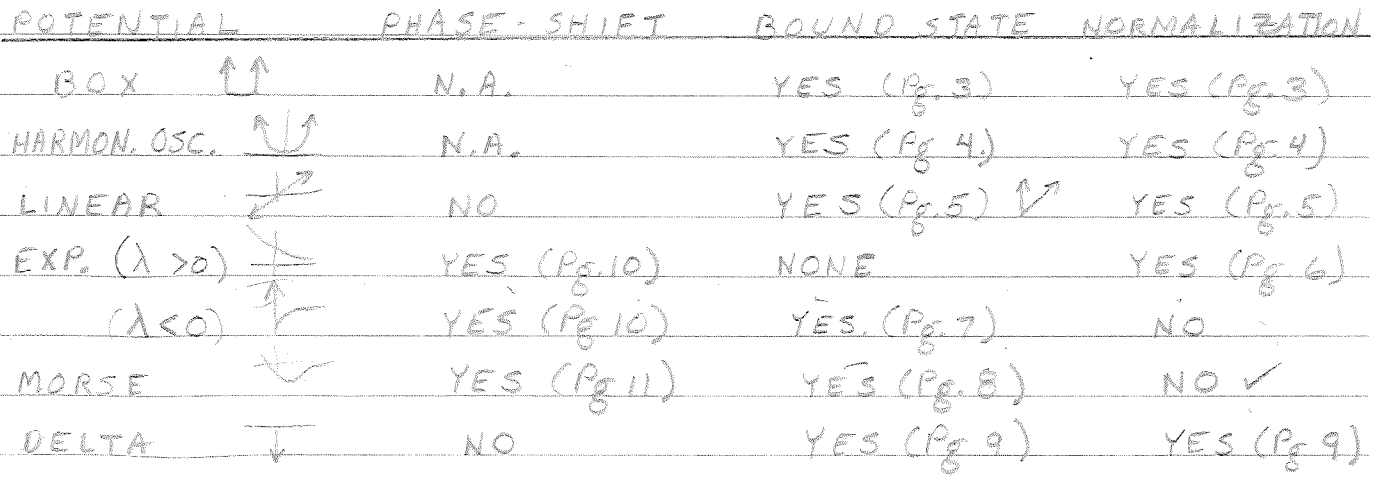 POTENTIAL PHASE-SHIFT BOUND STATE NORMALIZATION
BOX N.A. YES (Pg. 3) YES (Pg. 3)
HARMON. OSC. N.A. YES (Pg 4.) YES (Pg. 4)
LINEAR NO YES (Pg. 5) YES (Pg. 5)
EXP. (λ >0) YES (Pg. 10) NONE YES (Pg. 6)
(λ<0) YES (Pg 10) YES. (Pg. 7) NO
MORSE YES (Pg 11) YES (Pg. 8) NO ✓
DELTA NO YES (Pg 9) YES (Pg 9)